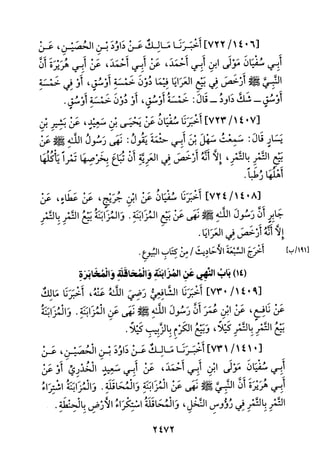 [٧٢٢/١٤٠٦] أَخْبَرَنَا مَالِكٌ عَنْ دَاوُدَ بْنِ الحُصَيْنِ، عَنْ
أَبِي سُفْيَانَ مَوْلَى ابنِ أَبِي أَحْمَدَ، عَنْ أَبِي أَحْمَدَ، عَنْ أَبِي هُرَيْرَةَ أَنَّ
النَّبِيَّ ﷺ أَرْخَصَ فِي بَيْعِ العَرَايَا فِيْمَا دُوْنَ خَمْسَةِ أَوْسُقٍ، أَوْ فِي خَمْسَةِ
أَوْسُقٍ – شَكَّ دَاودُ – قَالَ: خَمْسَةُ أَوْسُقٍ، أَوْ دُوْنَ خَمْسَةِ أَوْسُقٍ.
[٧٢٣/١٤٠٧] أَخْبَرَنَا سُفْيَانُ عَنْ يَحْيَـى بْنِ سَعِيدٍ، عَنْ بَشِيرِ بْنِ
يَسَارٍ قَالَ: سَمِعْتُ سَهْلَ بْنَ أَبِي حَثْمَةَ يَقُولُ: نَهَى رَسُولُ اللَّهِ ﷺ عَنْ
بَيْعِ الثَّمْرِ بِالتَّمْرِ، إِلَّا أَنَّهُ أَرْخَصَ فِي العَرِيَّةِ أَنْ تُبَاعَ بِخَرْصِهَا تَمْراً يَأْكُلُهَا
أَهْلُهَا رُطَباً.
[٧٢٤/١٤٠٨] أَخْبَرَنَا سُفْيَانُ عَنْ ابْنِ جُرَيْجٍ، عَنْ عَطَاءٍ، عَنْ
جَابِرٍ أَنَّ رَسُولَ اللَّهِ ﷺ نَهَى عَنْ بَيْعِ المُزَابَنَةِ. وَالمُزَابَنَةُ بَيْعُ الثَّمْرِ بِالتَّمْرِ
إِلَّا أَنَّهُ أَرْخَصَ فِي العَرَايَا.
أَخْرَجَ السَّبْعَةَ الأَحَادِيثَ / مِنْ كِتَابِ البُيوعِ. [١٩١/ب]
(١٤) بَابُ النَّهْيِ عَنِ المُزَابَنَةِ وَالمُحَاقَلَةِ وَالمُخَابَرَةِ
[٧٣٠/١٤٠٩] أَخْبَرَنَا الشَّافِعِيُّ رَضِيَ اللَّهُ عَنْهُ، أَخْبَرَنَا مَالِكٌ
عَنْ نَافِعٍ، عَنْ ابْنِ عُمَرَ أَنَّ رَسُولَ اللَّهِ ﷺ نَهَى عَنِ المُزَابَنَةِ. وَالمُزَابَنَةُ
بَيْعُ الثَّمْرِ بِالتَّمْرِ كَيْلًا، وَبَيْعُ الكَرْمِ بِالزَّبِيبِ كَيْلًا.
[٧٣١/١٤١٠] أَخْبَرَنَا مَالِكٌ عَنْ دَاوُدَ بْنِ الحُصَيْنِ، عَنْ
أَبِي سُفْيَانَ مَوْلَى ابْنِ أَبِي أَحْمَدَ، عَنْ أَبِي سَعِيدٍ الخُدْرِيِّ أَوْ عَنْ
أَبِي هُرَيْرَةَ أَنَّ النَّبِيَّ ﷺ نَهَى عَنْ المُزَابَنَةِ وَالمُحَاقَلَةِ. وَالمُزَابَنَةُ اشْتِرَاءُ
الثَّمْرِ بِالتَّمْرِ فِي رُؤُوسِ النَّخْلِ، وَالمُحَاقَلَةُ اسْتِكْرَاءُ الأَرْضِ بِالحِنْطَةِ.
٢٤٧٢